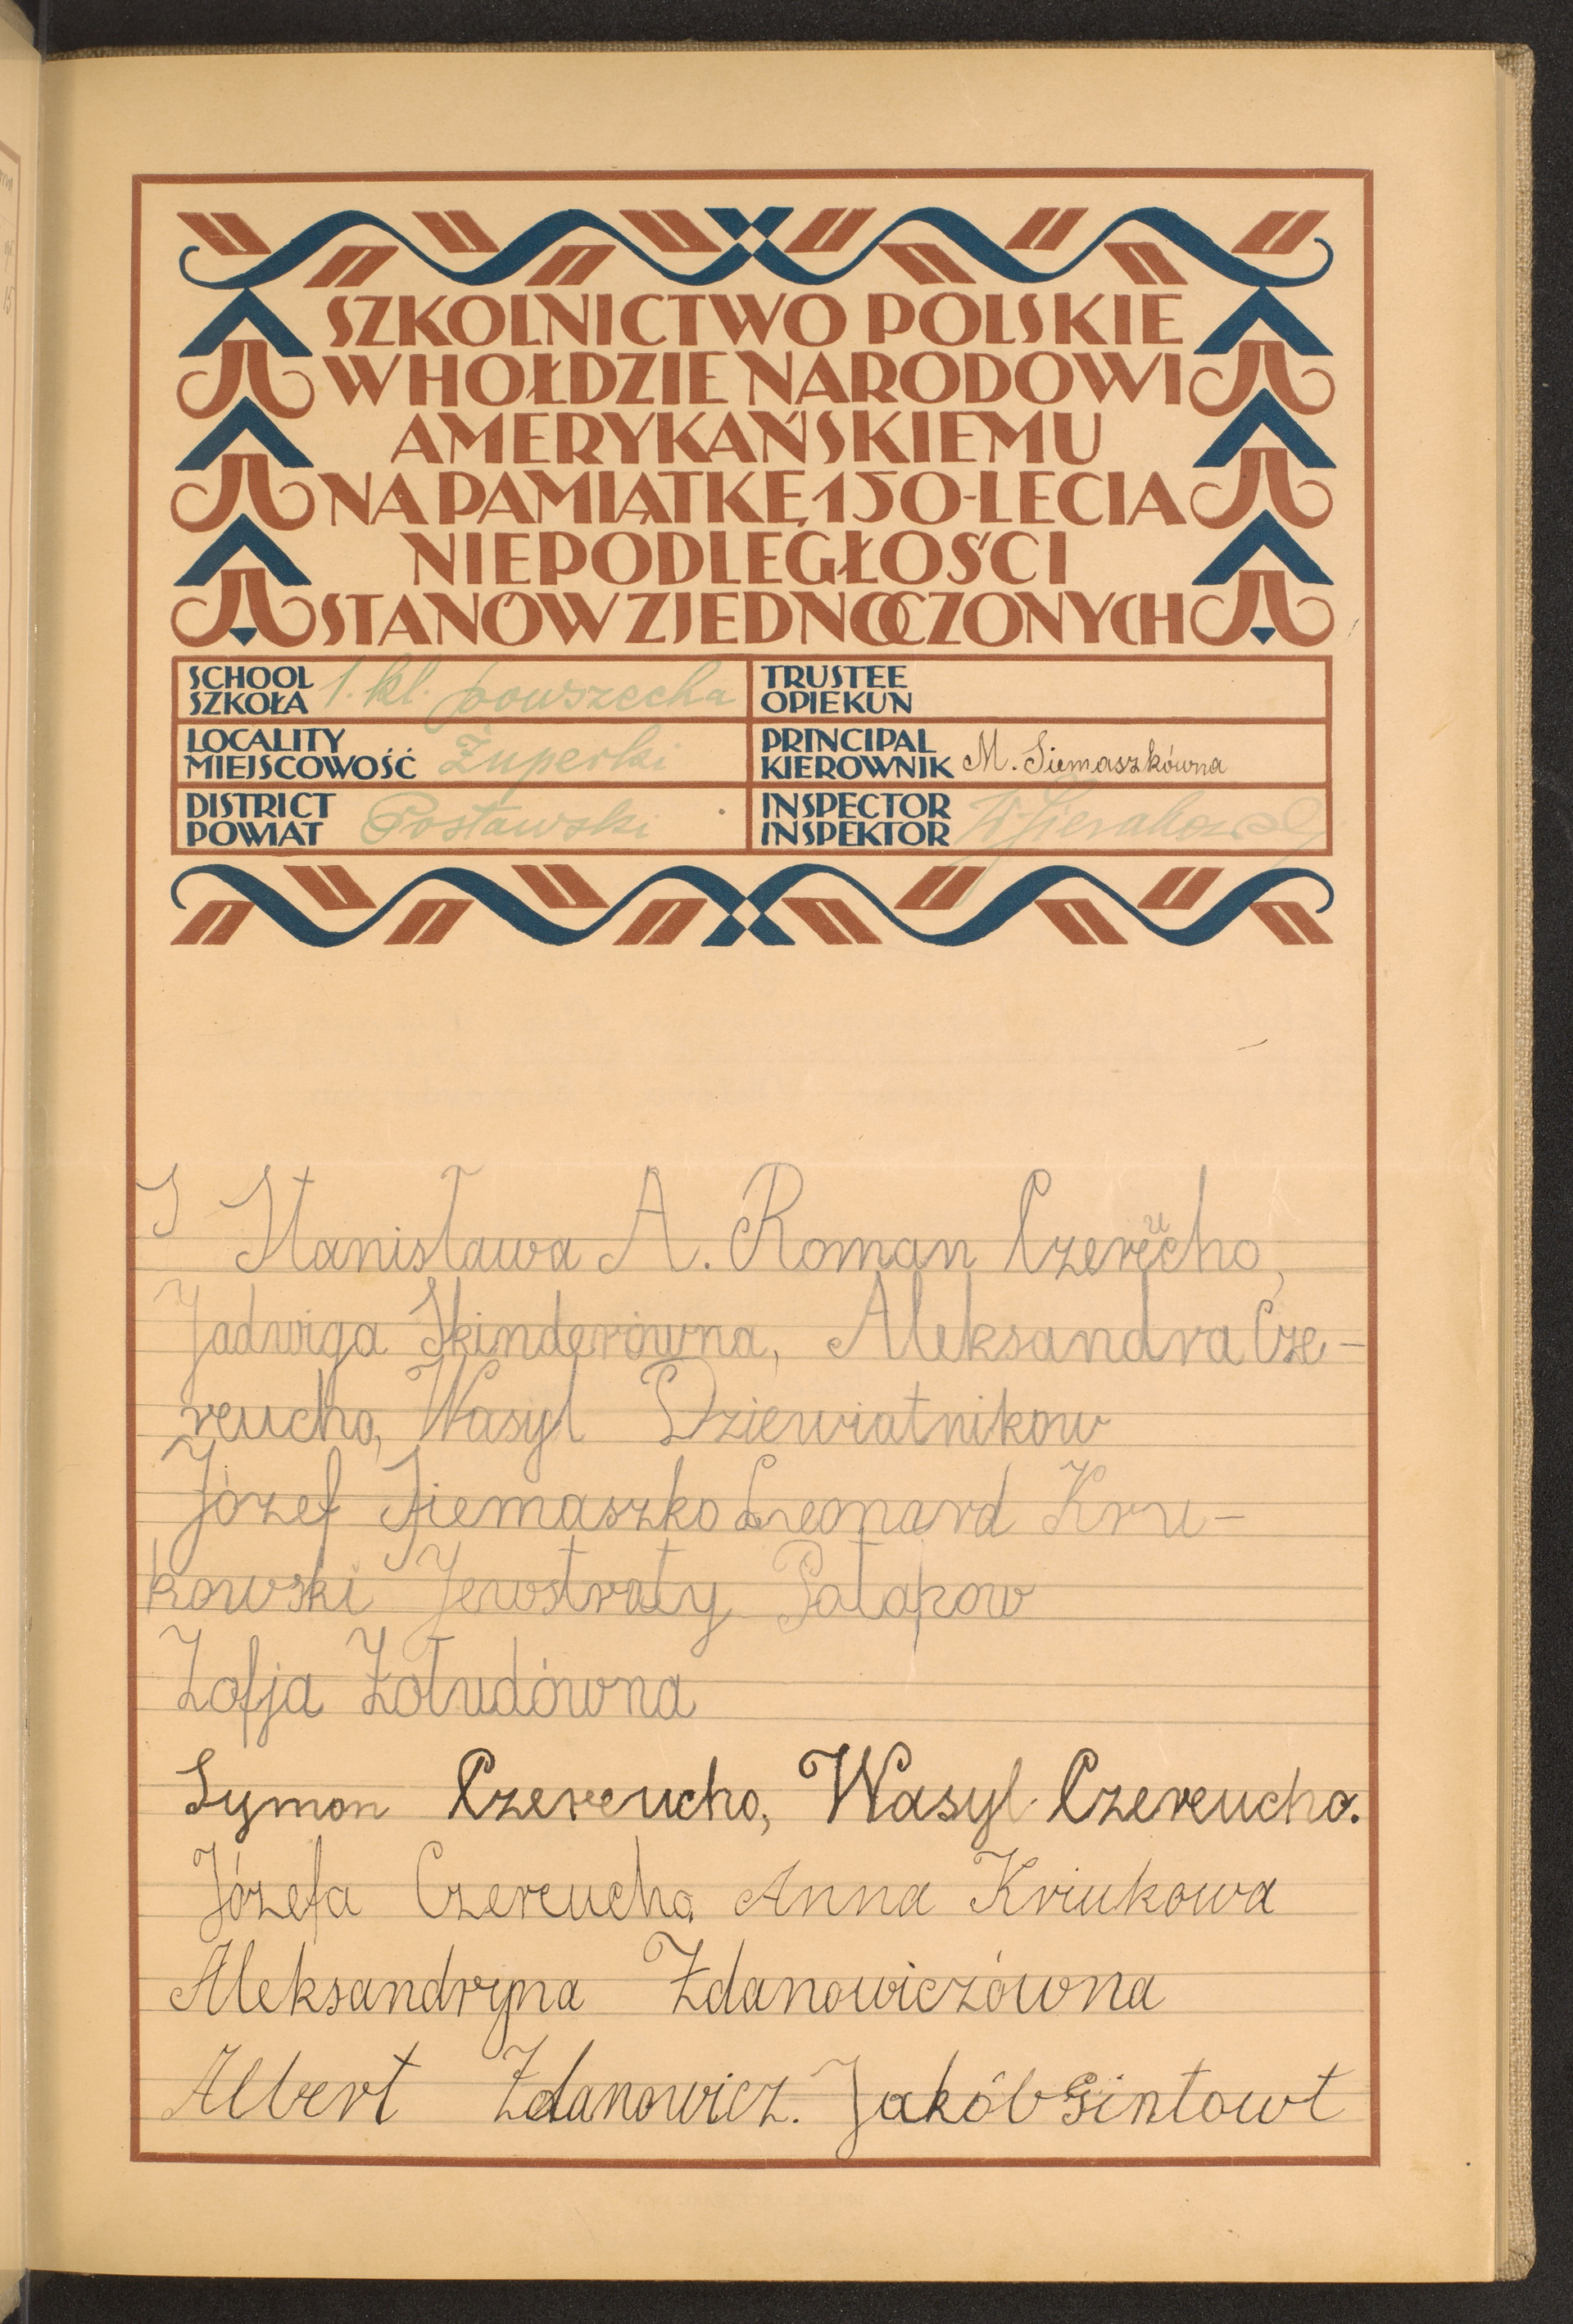 SZKOLNICTWO POLSKIE
W HOŁDZIE NARODOWI
AMERYKAŃSKIEMU
NA PAMIĄTKĘ 150-LECIA
NIEPODLEGŁOŚCI
STANÓW ZJEDNOCZONYCH
SCHOOL
SZKOŁA 1. kl. powszecha
TRUSTEE
OPIEKUN
LOCALITY
MIEJSCOWOŚĆ Żuperki
PRINCIPAL
KIEROWNIK M. Siemaszkówna
DISTRICT
POWIAT Postawski
INSPECTOR
INSPEKTOR
S Stanisława A. Roman Czereucho,
Jadwiga Skinderówna, Aleksandra Cze-
reucho, Wasyl Dziewiatnikow
Józef Siemaszko Leonard Kru-
kowski Jewstraty Potapow
Zofja Żołudówna
Symon Czereucho, Wasyl Czereucho.
Józefa Czereucho. Anna Kriukowa
Aleksandryna Zdanowiczówna
Albert Zdanowicz. Jakób Gintowt